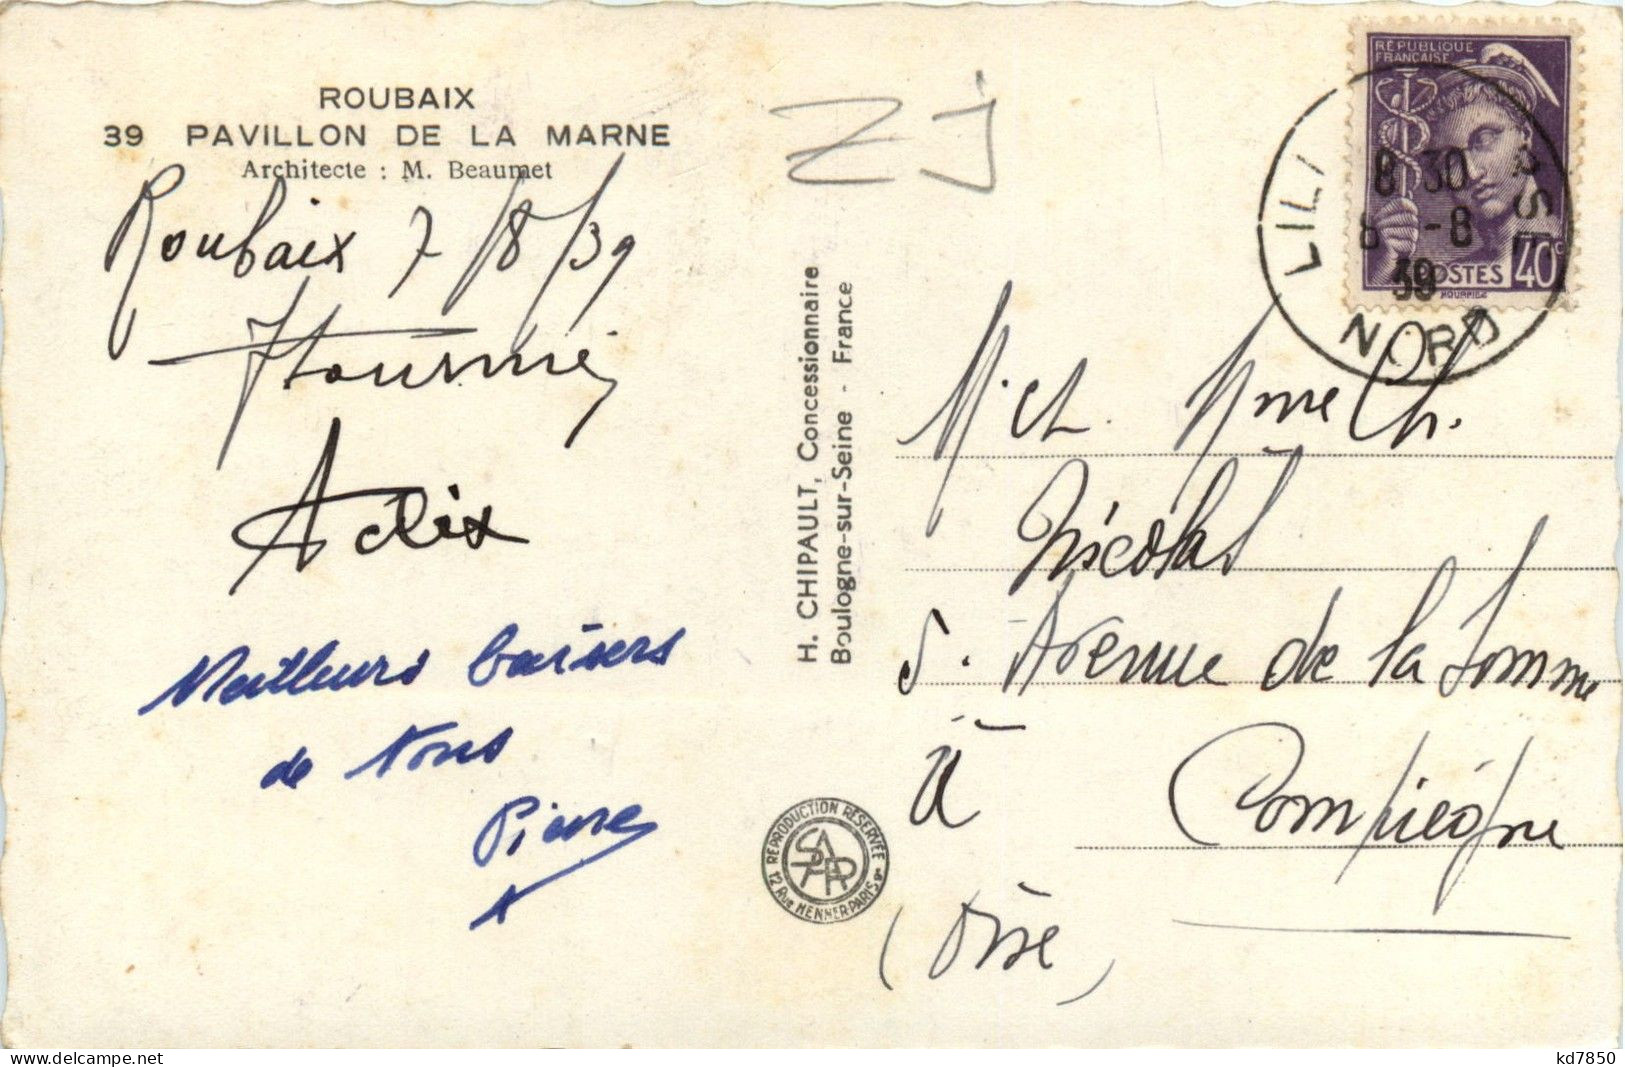 ROUBAIX
39 PAVILLON DE LA MARNE
Architecte : M. Beaumet
Roubaix 7/8/39
Meilleurs baisers
de Nous
Pierre
H. CHIPAULT, Concessionnaire
Boulogne-sur-Seine - France
REPRODUCTION RÉSERVÉE
SAPR
12 Rue HENNER-PARIS 9e
RÉPUBLIQUE
FRANÇAISE
POSTES 40c
8 30
8 -8
39
LILL
NORD
M. et Mme Ch.
Nicolas
5. Avenue de la Somme
à Compiègne
(Oise)
kd7850